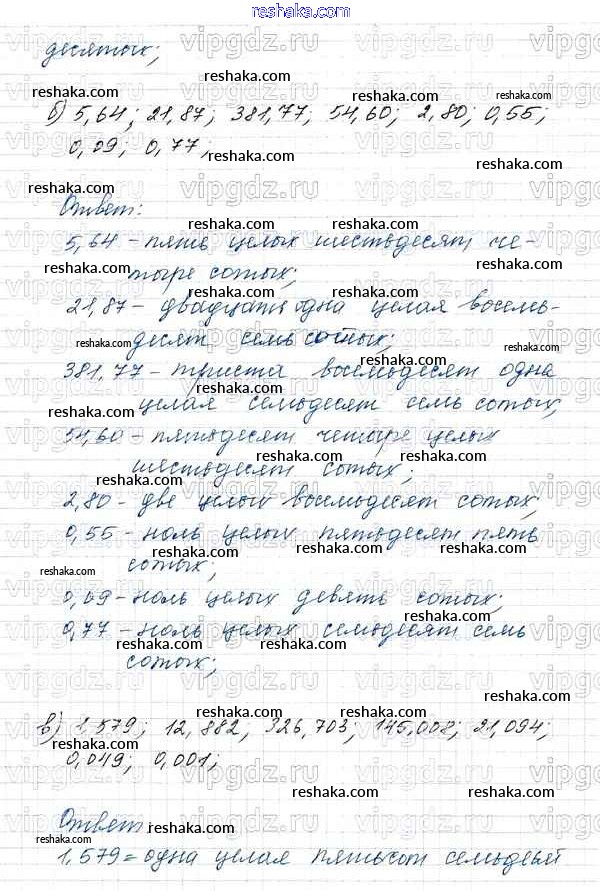 reshaka.com
десятых;
б) 5,64; 21,87; 381,77; 54,60; 2,80; 0,55;
0,09; 0,77;
Ответ:
5,64 – пять целых шестьдесят че-
тыре сотых;
21,87 – двадцать одна целая восемь-
десят семь сотых;
381,77 – триста восемьдесят одна
целая семьдесят семь сотых;
54,60 – пятьдесят четыре целых
шестьдесят сотых;
2,80 – две целых восемьдесят сотых;
0,55 – ноль целых пятьдесят пять
сотых;
0,09 – ноль целых девять сотых;
0,77 – ноль целых семьдесят семь
сотых;
в) 1,579; 12,882; 326,703; 145,008; 21,094;
0,049; 0,001;
Ответ:
1,579 = одна целая пятьсот семьдесят